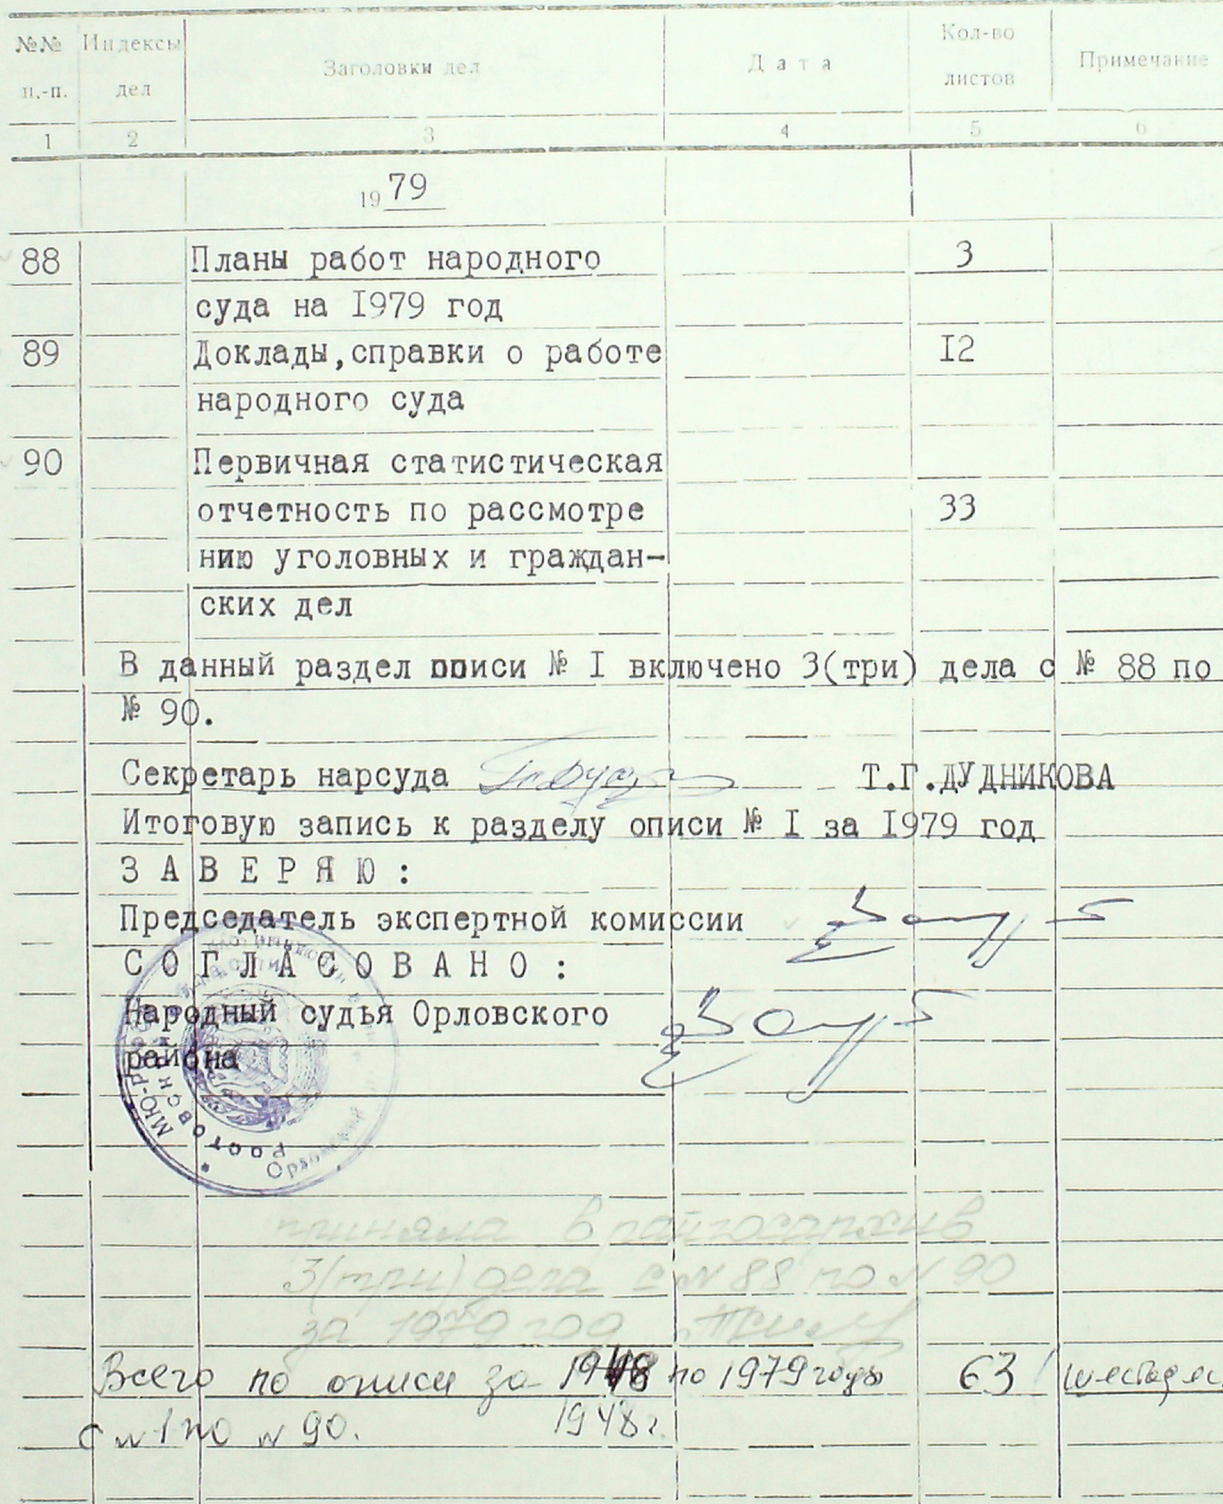 №№ п.-п. Индексы дел Заголовки дел Дата Кол-во листов Примечание
1 2 3 4 5 6
1979
88 Планы работ народного 3
суда на I979 год
89 Доклады,справки о работе I2
народного суда
90 Первичная статистическая
отчетность по рассмотре 33
нию уголовных и граждан-
ских дел
В данный раздел описи № I включено 3(три) дела с № 88 по
№ 90.
Секретарь нарсуда Т.Г.ДУДНИКОВА
Итоговую запись к разделу описи № I за I979 год
З А В Е Р Я Ю :
Председатель экспертной комиссии
С О Г Л А С О В А Н О :
Народный судья Орловского
района
приняла в райгосархив
3(три) дела с N 88 по N 90
за 1979 год
Всего по описи за 1948 по 1979 годы 63
с N 1 по N 90. 1948 г.